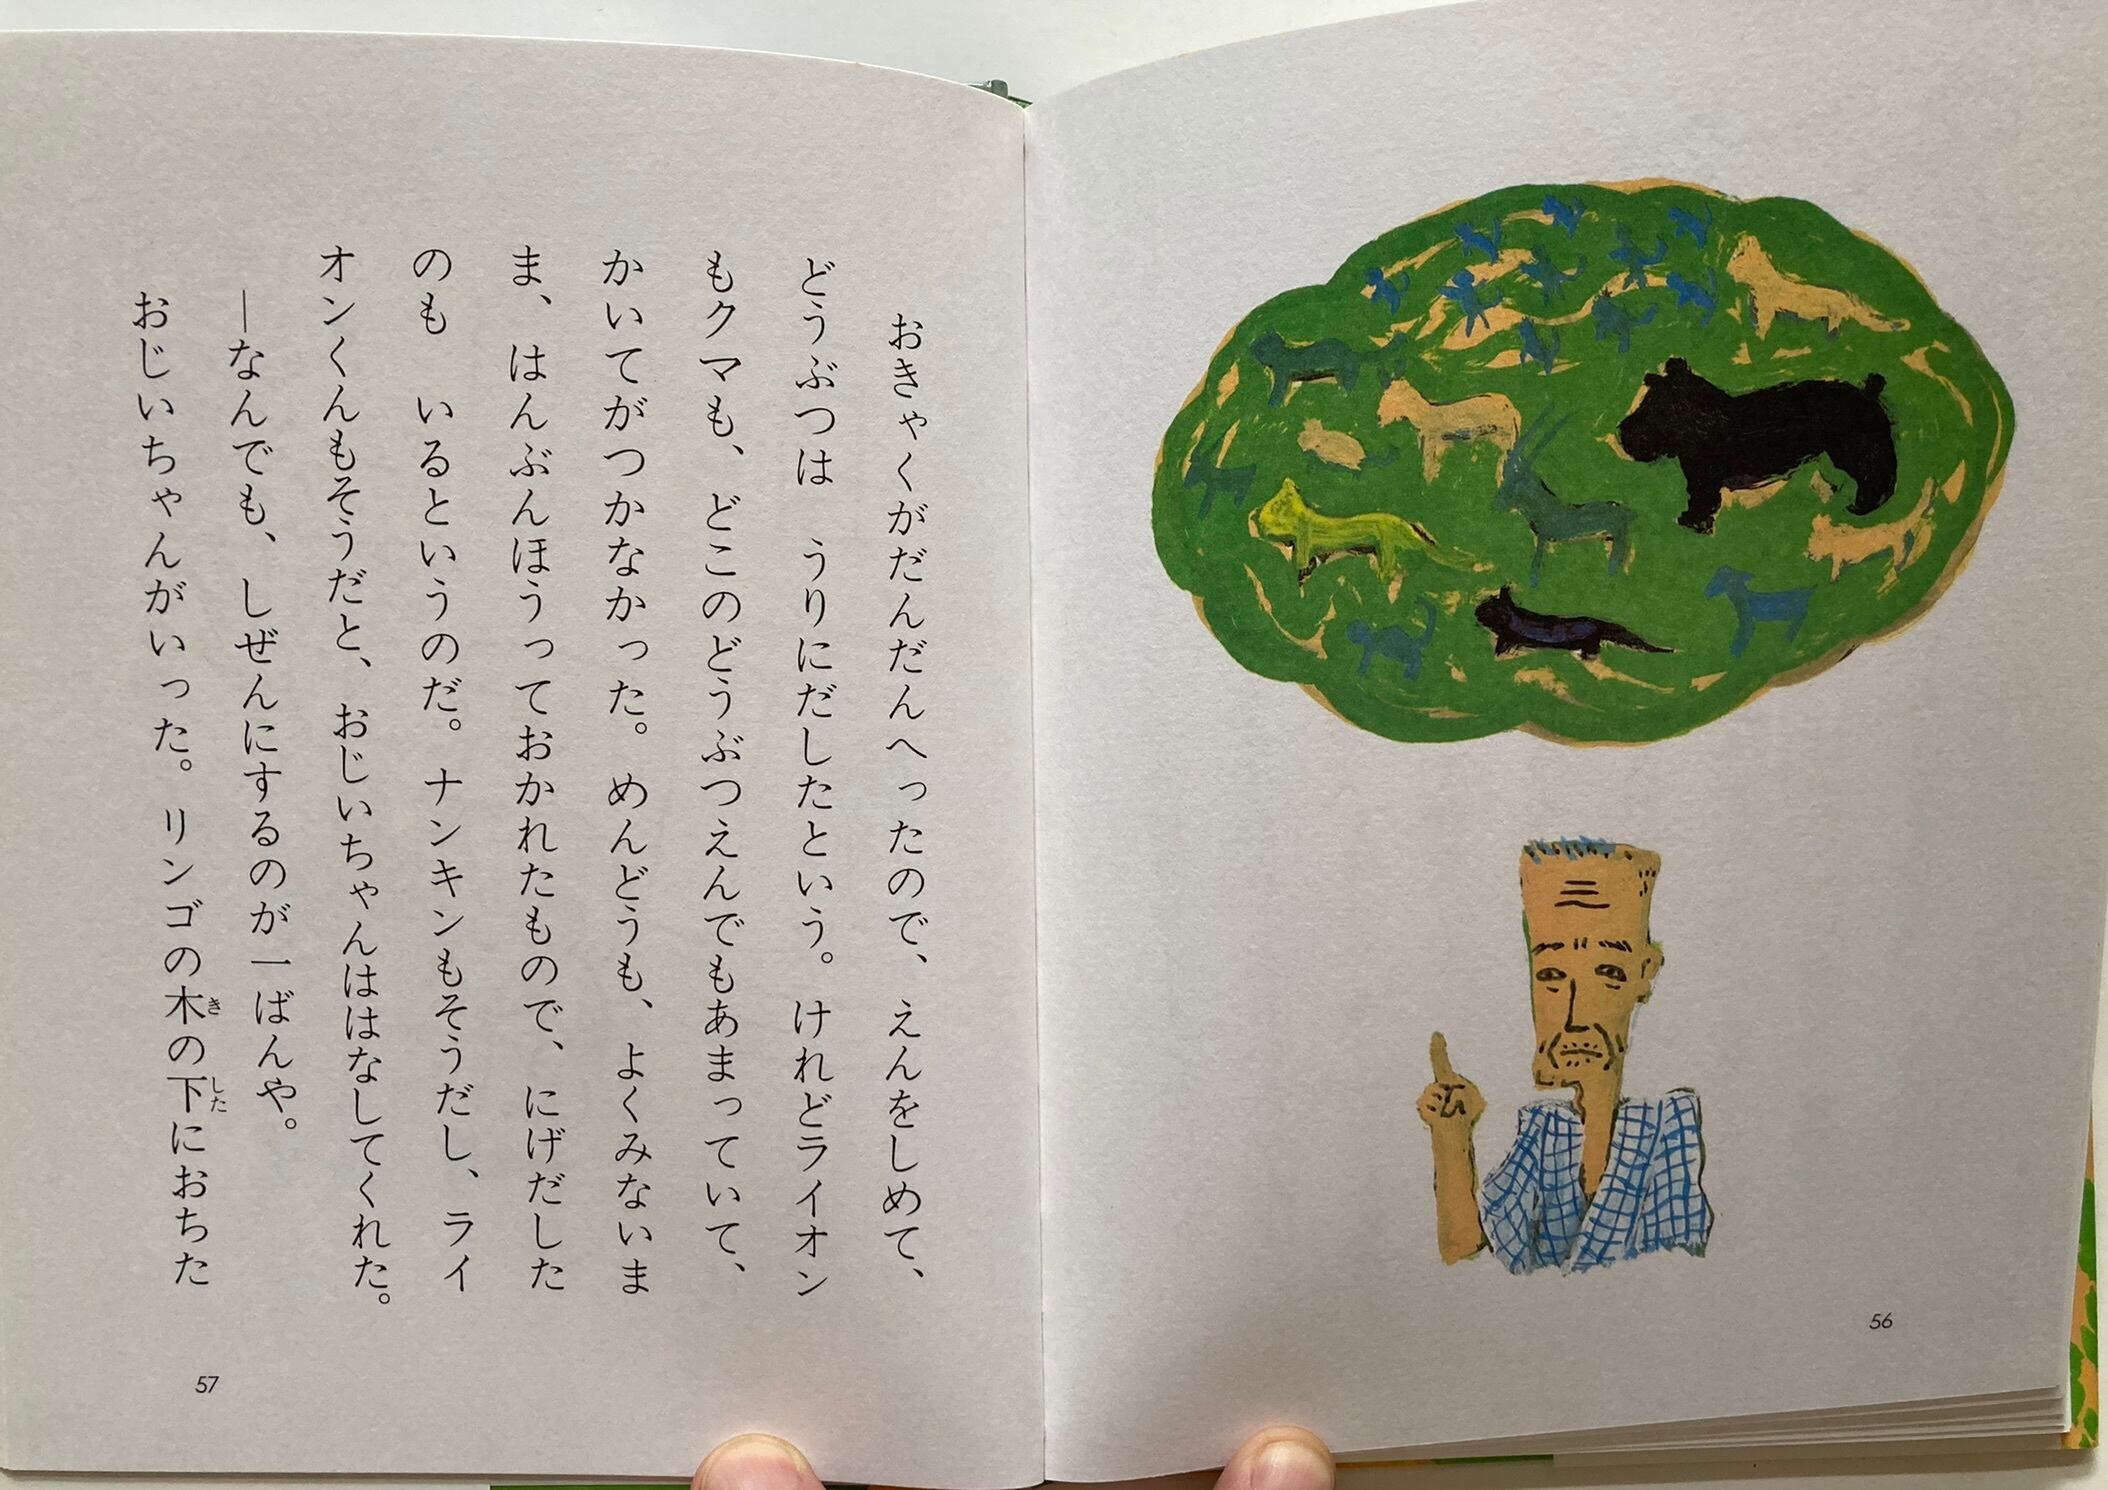 56
おきゃくがだんだんへったので、えんをしめて、
どうぶつは　うりにだしたという。けれどライオン
もクマも、どこのどうぶつえんでもあまっていて、
かいてがつかなかった。めんどうも、よくみないま
ま、はんぶんほうっておかれたもので、にげだした
のも　いるというのだ。ナンキンもそうだし、ライ
オンくんもそうだと、おじいちゃんははなしてくれた。
―なんでも、しぜんにするのが一ばんや。
おじいちゃんがいった。リンゴの木の下におちた
き
した
57